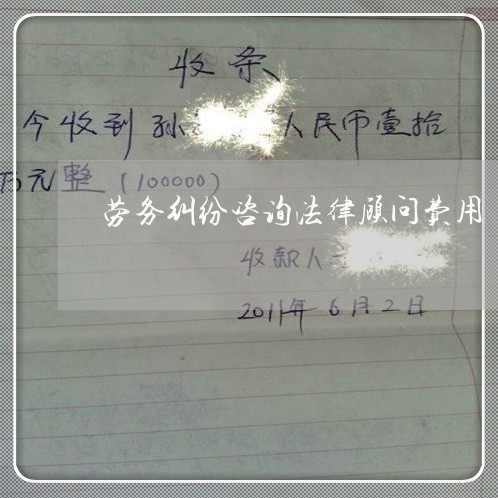 收条
今收到孙 人民币壹拾
万元整(100000)
劳务纠纷咨询法律顾问费用
收款人
2011年6月2日